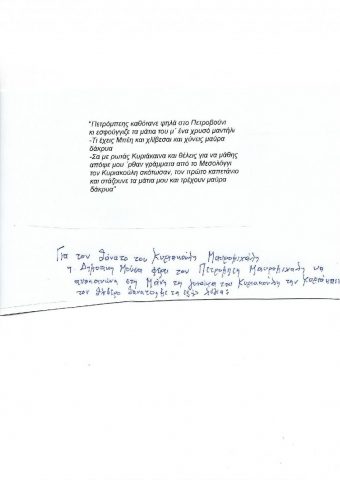 "Πετρόμπεης καθότανε ψηλά στο Πετροβούνι
κι εσφούγγιζε τα μάτια του μ΄ ένα χρυσό μαντήλι
-Τι έχεις Μπέη και χλίβεσαι και χύνεις μαύρα
δάκρυα
-Σα με ρωτάς Κυριάκαινα και θέλεις για να μάθης
απόψε μου ΄ρθαν γράμματα από το Μεσολόγγι
τον Κυριακούλη σκότωσαν, τον πρώτο καπετάνιο
και στάζουνε τα μάτια μου και τρέχουν μαύρα
δάκρυα"
Για τον θάνατο του Κυριακούλη Μαυρομιχάλη
η Δημοτική Μούσα φέρει τον Πετρόμπεη Μαυρομιχάλη να
ανακοινώνει στη Μάνη τη γυναίκα του Κυριακούλη την
τον θάνατο με τα εξής λόγια: